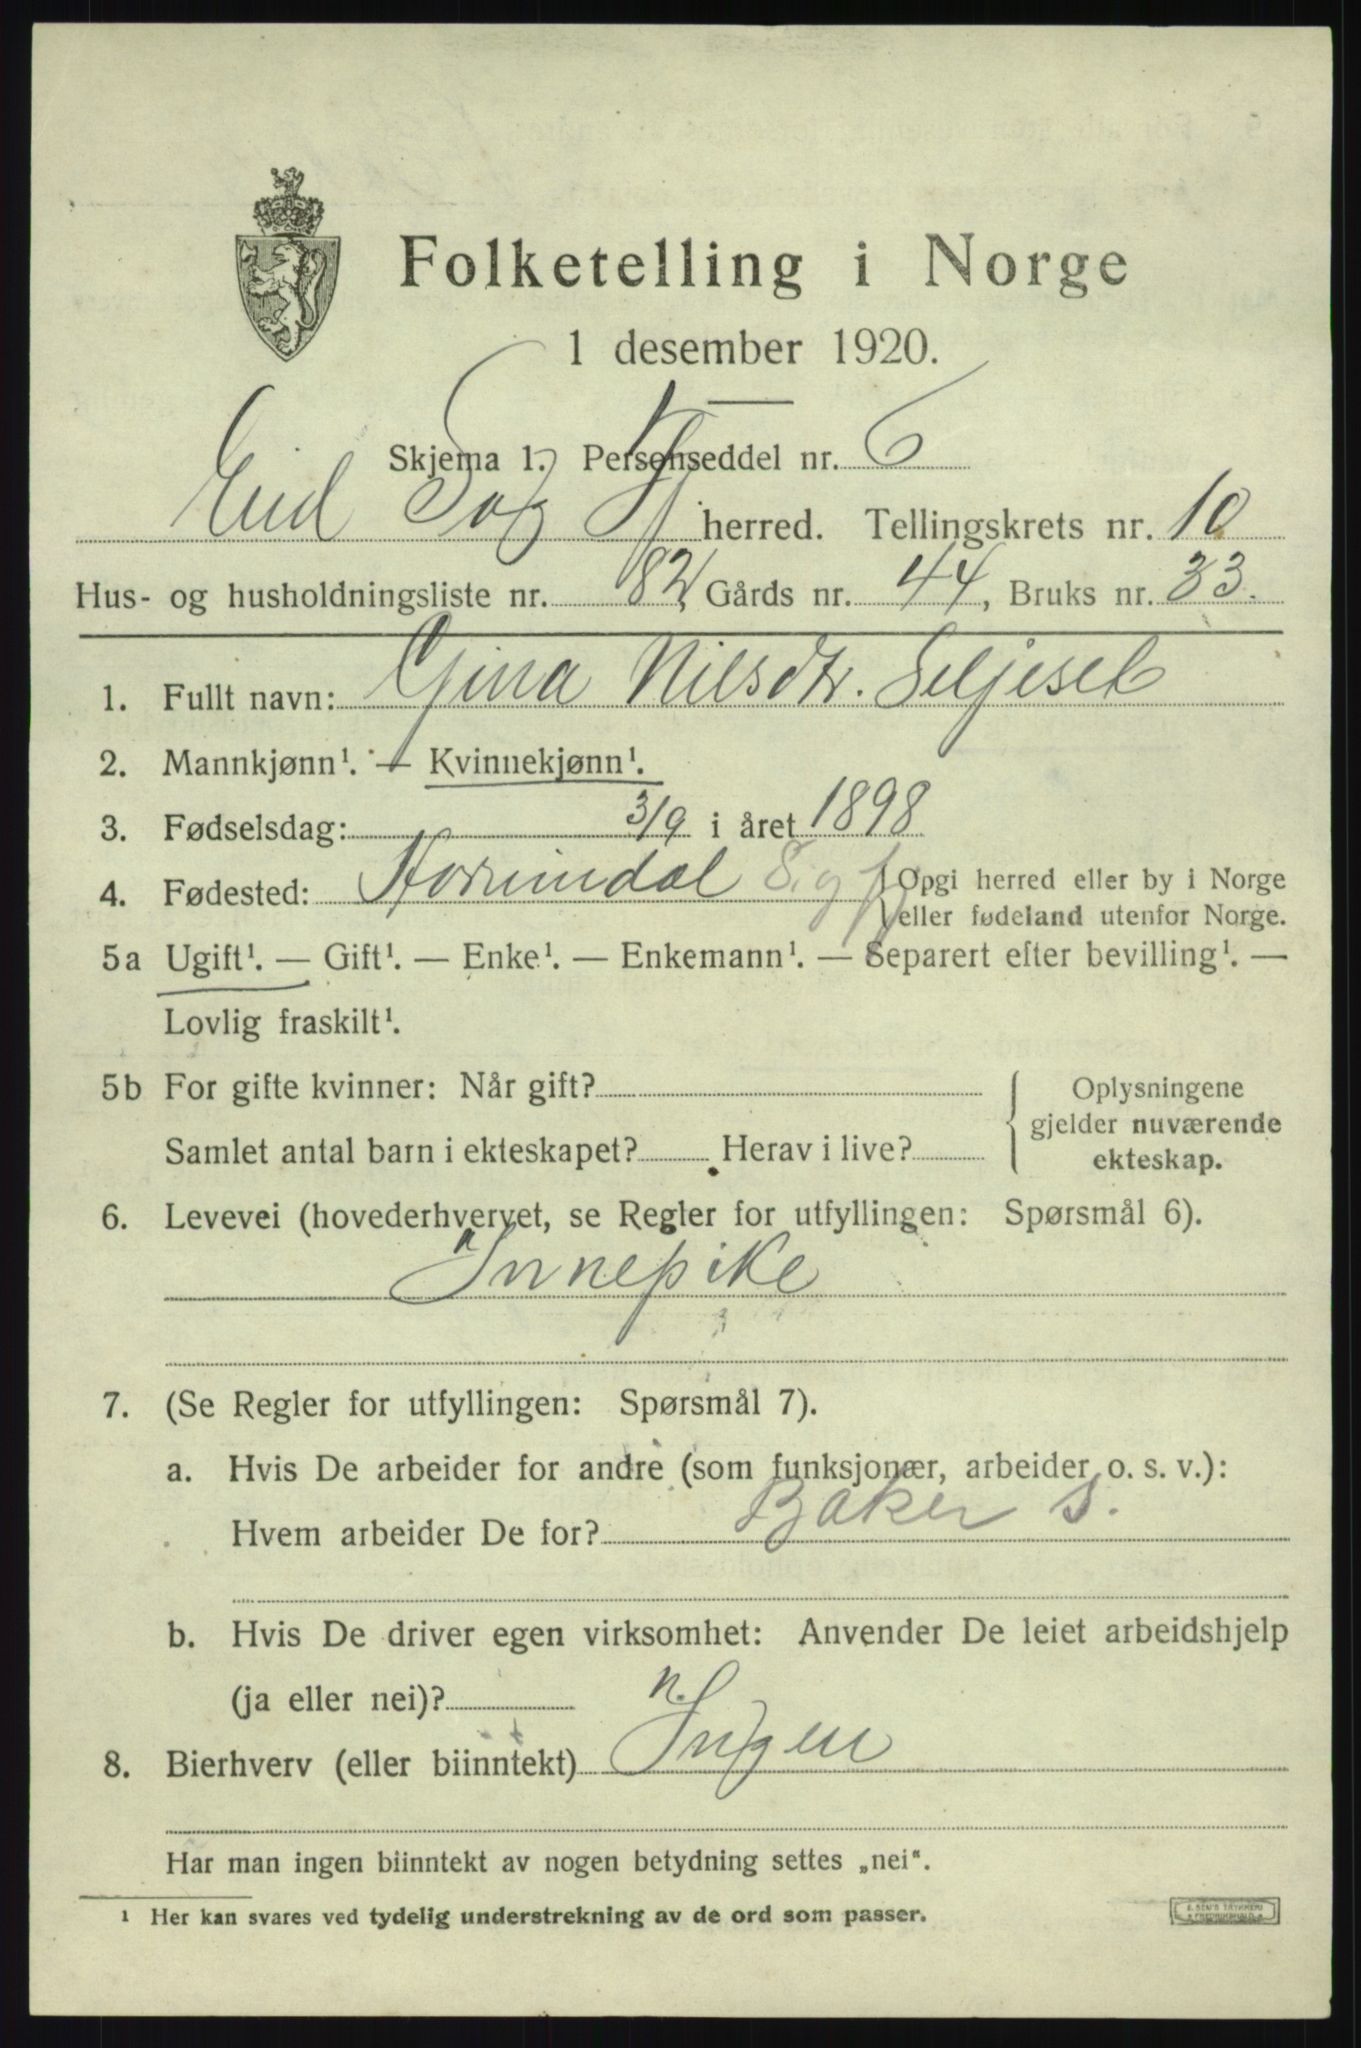 Folketelling i Norge
1 desember 1920.
Skjema 1. Personseddel nr. 6
Eid S og Fj herred. Tellingskrets nr. 10
Hus- og husholdningsliste nr. 82, Gårds nr. 44, Bruks nr. 33.
1. Fullt navn: Gina Nilsdtr. Seljeset
2. Mannkjønn¹. — Kvinnekjønn¹.
3. Fødselsdag: 3/9 i året 1898
4. Fødested: Hornindal S. og Fj { Opgi herred eller by i Norge
eller fødeland utenfor Norge.
5a Ugift¹. — Gift¹. — Enke¹. — Enkemann¹. — Separert efter bevilling¹. —
Lovlig fraskilt¹.
5b For gifte kvinner: Når gift?
Samlet antal barn i ekteskapet? Herav i live?
{ Oplysningene
gjelder nuværende
ekteskap.
6. Levevei (hovederhvervet, se Regler for utfyllingen: Spørsmål 6).
Innepike
7. (Se Regler for utfyllingen: Spørsmål 7).
a. Hvis De arbeider for andre (som funksjonær, arbeider o. s. v.):
Hvem arbeider De for? Baker S.
b. Hvis De driver egen virksomhet: Anvender De leiet arbeidshjelp
(ja eller nei)?
n.
8. Bierhverv (eller biinntekt) Ingen
Har man ingen biinntekt av nogen betydning settes „nei".
¹ Her kan svares ved tydelig understrekning av de ord som passer.